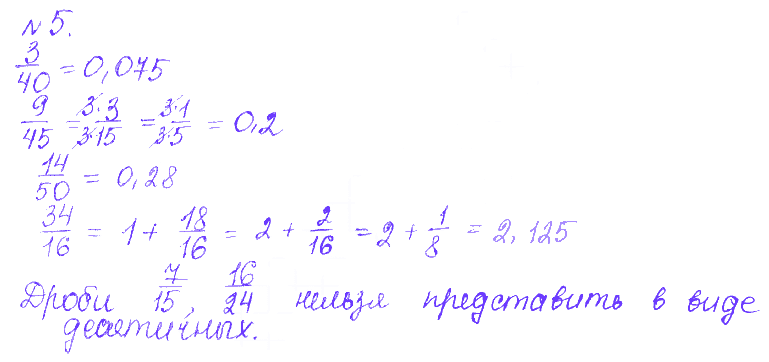 №5.
3/40 = 0,075
9/45 = 3·3/3·15 = 3·1/3·5 = 0,2
14/50 = 0,28
34/16 = 1 + 18/16 = 2 + 2/16 = 2 + 1/8 = 2,125
Дроби 7/15, 16/24 нельзя представить в виде
десятичных.